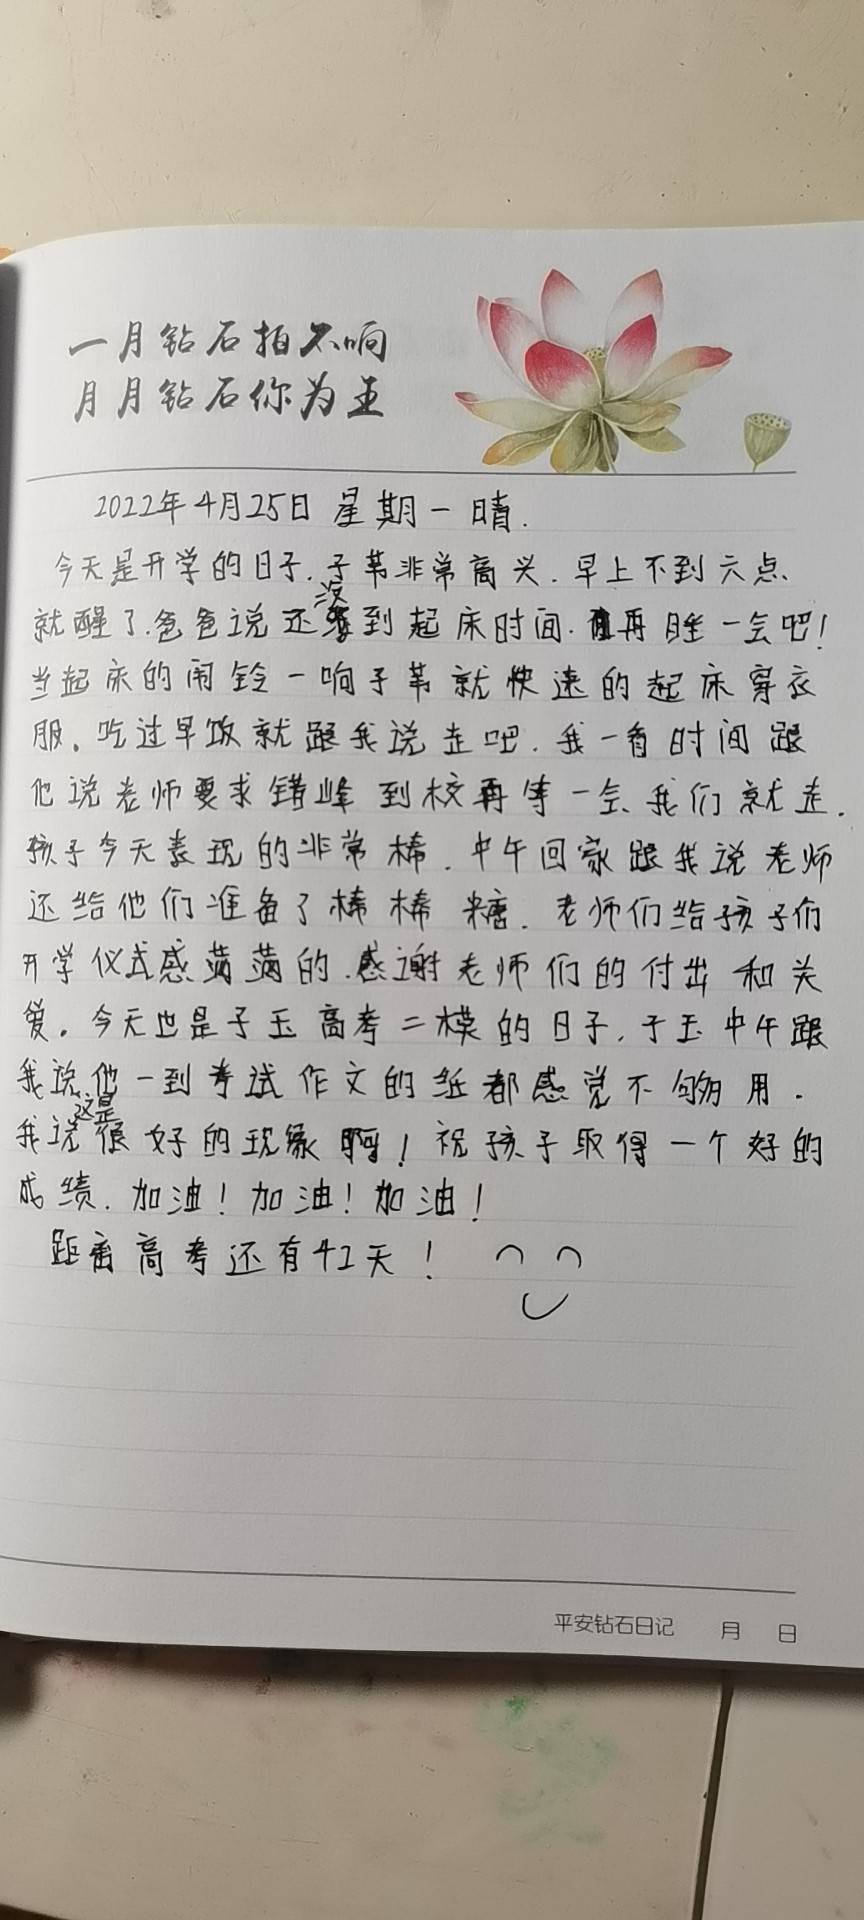 一月钻石拍不响
月月钻石你为王
2022年4月25日 星期一 晴.
今天是开学的日子.子苇非常高兴.早上不到六点、
就醒了.爸爸说还没到起床时间.再睡一会吧!
当起床的闹铃一响子苇就快速的起床穿衣
服。吃过早饭就跟我说走吧.我一看时间跟
他说老师要求错峰到校再等一会、我们就走.
孩子今天表现的非常棒.中午回家跟我说老师
还给他们准备了棒棒糖.老师们给孩子们
开学仪式感满满的.感谢老师们的付出和关
爱。今天也是子玉高考二模的日子.子玉中午跟
我说他一到考试作文的纸都感觉不够用.
我说这是很好的现象啊!祝孩子取得一个好的
成绩.加油!加油!加油!
距离高考还有42天!
平安钻石日记 月 日